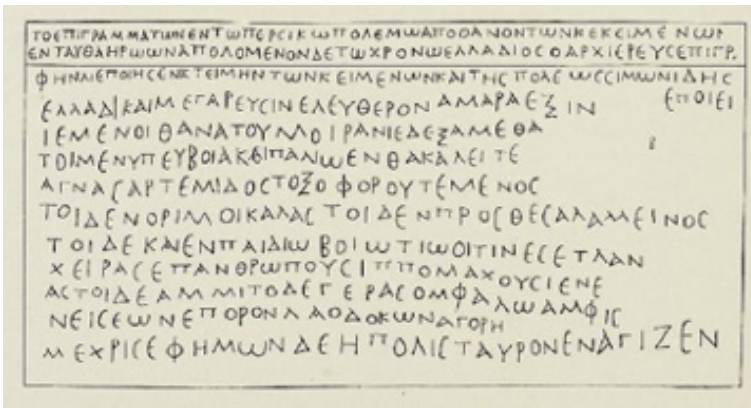 ΤΟΕΠΙΓΡΑΜΜΑΤΩΝΕΝΤΩΠΕΡΣΙΚΩΠΟΛΕΜΩΑΠΟΘΑΝΟΝΤΩΝΚΕΚΕΙΜΕΝΩΝ
ΕΝΤΑΥΘΑΗΡΩΩΝΑΠΟΛΟΜΕΝΟΝΔΕΤΩΧΡΟΝΩΕΛΛΑΔΙΟϹΟΑΡΧΙΕΡΕΥϹΕΠΙΓΡ.
ΦΗΝΑΙΕΠΟΙΗϹΕΝΕΙϹΤΕΙΜΗΝΤΩΝΚΕΙΜΕΝΩΝΚΑΙΤΗϹΠΟΛΕΩϹϹΙΜΩΝΙΔΗϹ
ΕΠΟΙΕΙ
ΕΛΛΑΔΙΚΑΙΜΕΓΑΡΕΥϹΙΝΕΛΕΥΘΕΡΟΝΑΜΑΡΑΕΞΙΝ
ΙΕΜΕΝΟΙΘΑΝΑΤΟΥΜΟΙΡΑΝΙΕΔΕΞΑΜΕΘΑ
ΤΟΙΜΕΝΥΠΕΥΒΟΙΑΚΑΙΠΑΛΙΩΕΝΘΑΚΑΛΕΙΤΕ
ΑΓΝΑϹΑΡΤΕΜΙΔΟϹΤΟΞΟΦΟΡΟΥΤΕΜΕΝΟϹ
ΤΟΙΔΕΝΟΡΙΜΟΙΚΑΛΑϹΤΟΙΔΕΝΠΡΟϹΘΕϹΑΛΑΜΕΙΝΟϹ
ΤΟΙΔΕΚΑΙΕΝΠΑΙΔΙΩΒΟΙΩΤΙΩΟΙΤΙΝΕϹΕΤΛΑΝ
ΧΕΙΡΑϹΕΠΑΝΘΡΩΠΟΥϹΙΠΠΟΜΑΧΟΥϹΙΕΝΕ
ΑϹΤΟΙΔΕΑΜΜΙΤΟΔΕΓΕΡΑϹΟΜΦΑΛΩΑΜΦΙϹ
ΝΕΙϹΕΩΝΕΠΟΡΟΝΛΑΟΔΟΚΩΝΑΓΟΡΗ
ΜΕΧΡΙϹΕΦΗΜΩΝΔΕΗΠΟΛΙϹΤΑΥΡΟΝΕΝΑΓΙΖΕΝ